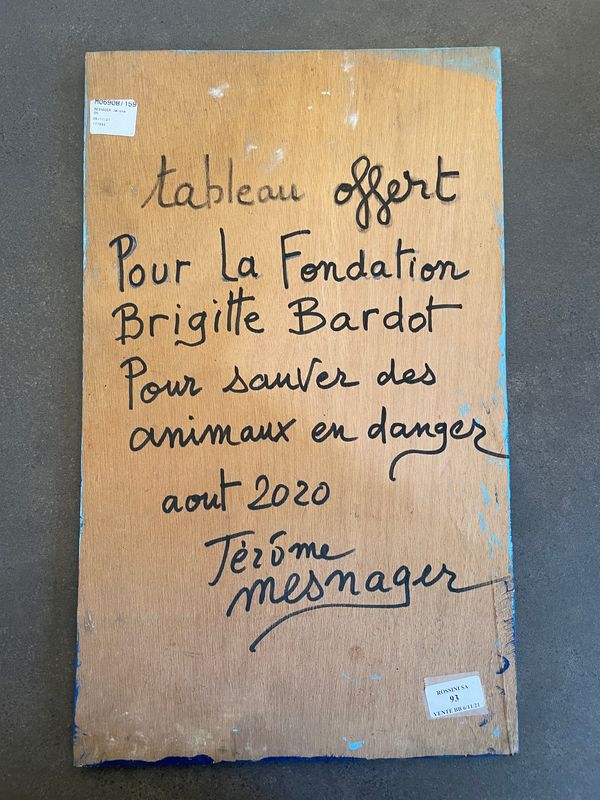 M06908/159
tableau offert
Pour La Fondation
Brigitte Bardot
Pour sauver des
animaux en danger
aout 2020
Jérôme
mesnager
ROSSINI SA
93
VENTE BB 6/11/21